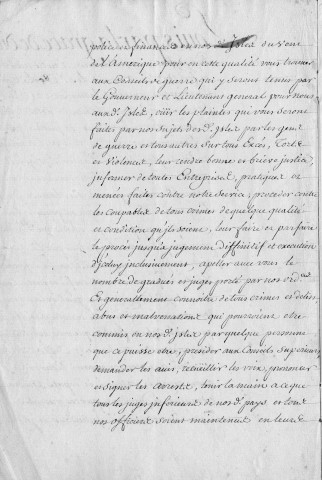 police et finances en nos d. Isles du Vent
de l'Amerique pour en cette qualité vous trouver
aux Conseils de guerre qui y seront tenus par
le Gouverneur et Lieutenant general pour nous
auxd. Isles, ouir les plaintes qui vous seront
faites par nos sujets desd. Isles par les gens
de guerre et tous autres sur tous Excés, Torts
et Violences, leur rendre bonne et brieve justice,
informer de toutes Entreprises, pratiques et
menées faites contre notre service, proceder contre
les coupables de tous crimes de quelque qualité
et condition qu'ils soient, leur faire et parfaire
le procés jusqu'a jugement diffinitif et execution
d'iceluy inclusivement, appeller avec vous le
nombre de graduez et juges porté par nos Ord.ces
Et generallement connoitre de tous crimes et delits,
abus et malversations qui pourroient etre
commis en nosd. Isles par quelque personne
que ce puisse etre, presider aux Conseils Superieurs,
demander les avis, receuillir les voix, prononcer
et signer les arrests, tenir la main a ce que
tous les juges inferieurs de nosd. pays et tous
nos officiers soient maintenus en leurs